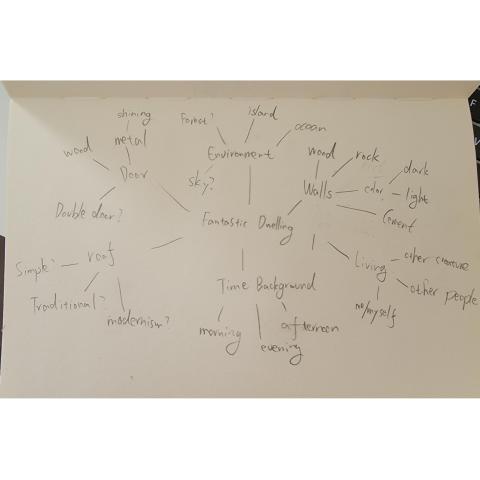 shining
metal
wood
Door
Double door?
Forest?
island
ocean
Environment
sky?
wood
rock
Walls
color
dark
light
Cement
Fantastic Dwelling
roof
Simple?
Traditional?
modernism?
Time Background
morning
evening
afternoon
Living
other creature
other people
me/myself
F
V